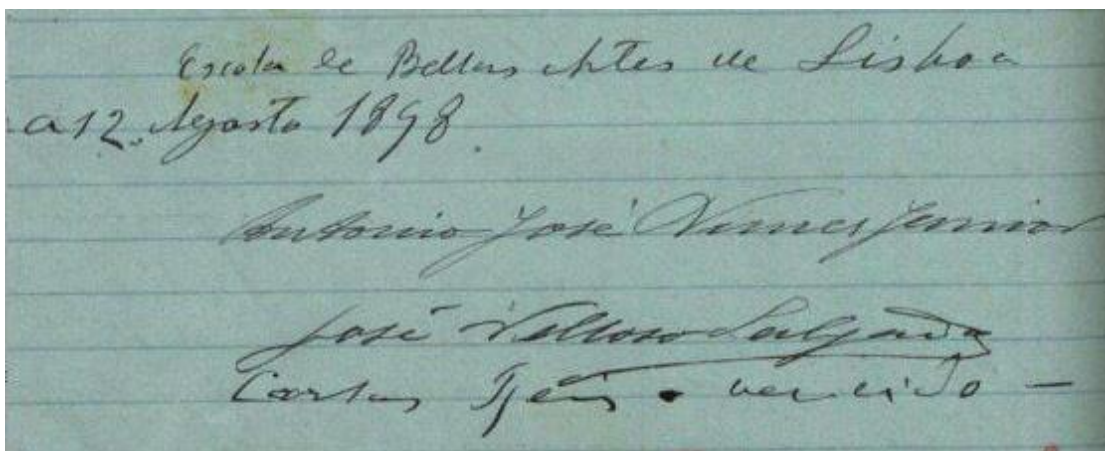 Escola de Bellas Artes de Lisboa
a 12 Agosto 1898.
Antonio José Nunes Junior
José Velloso Salgado
Carlos Reis • vencido —